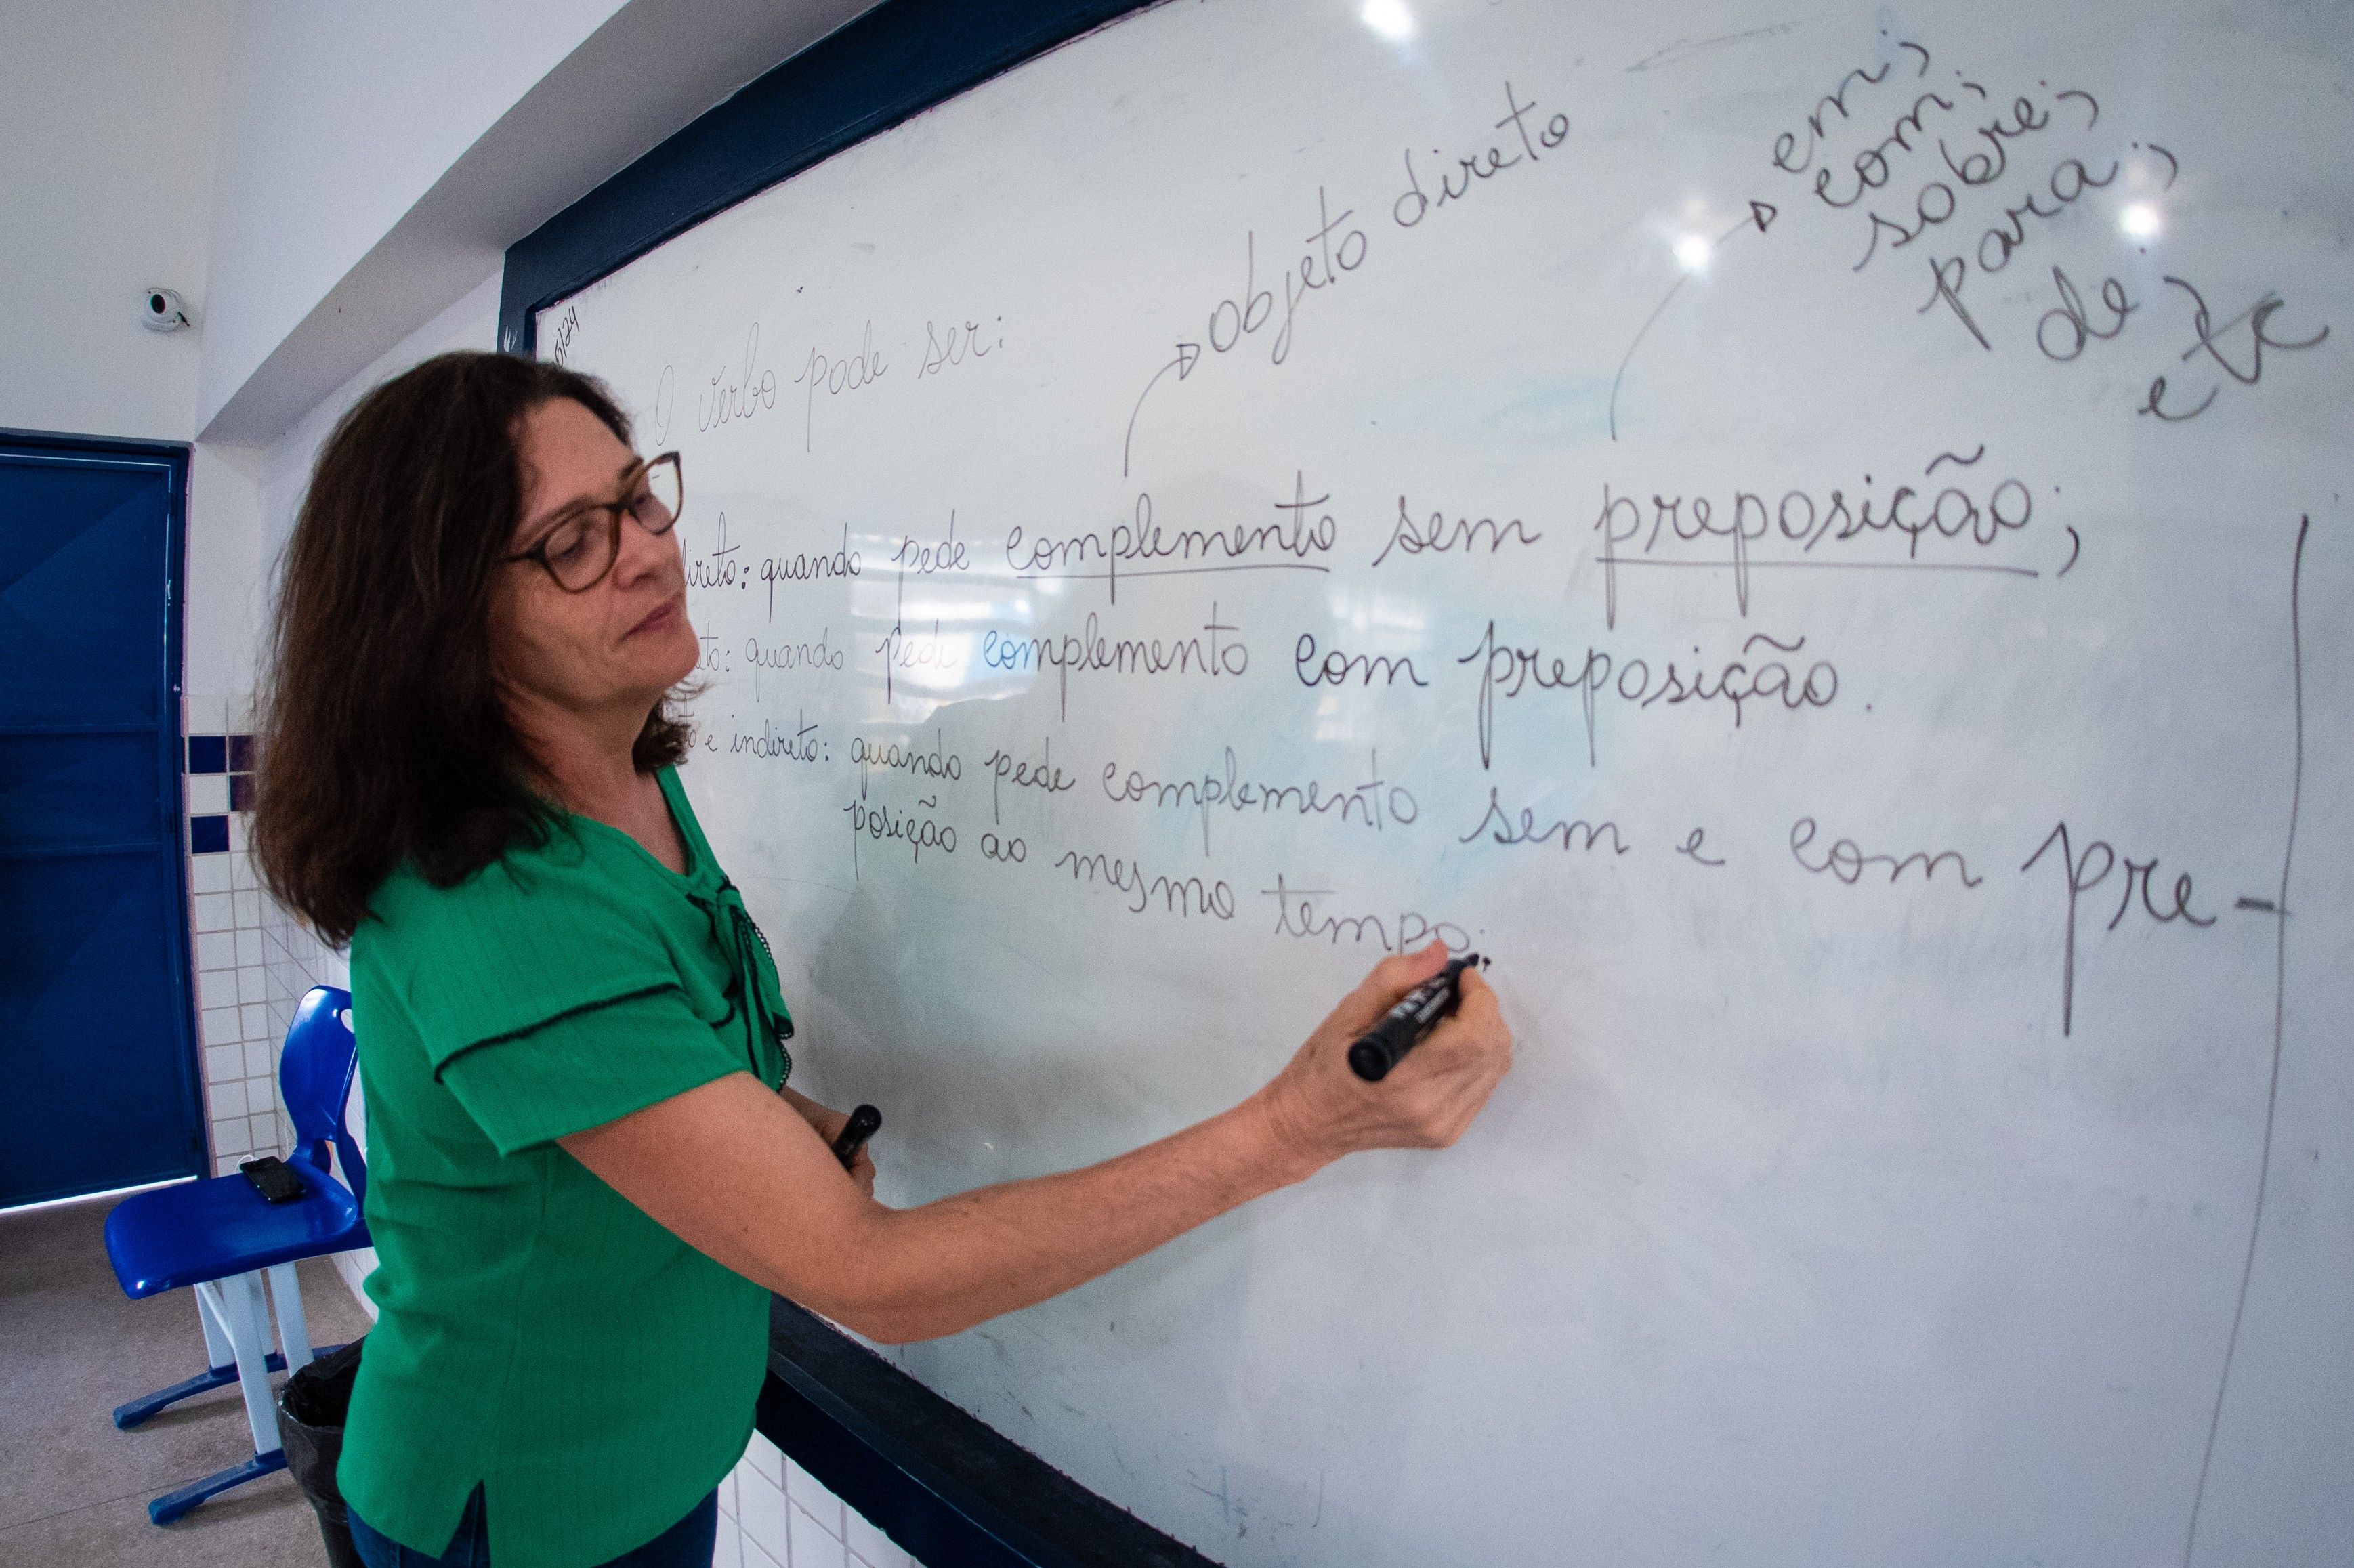 5/24
O verbo pode ser:
objeto direto
em;
com;
sobre;
para;
de;
etc
ireto: quando pede complemento sem preposição;
to: quando pede complemento com preposição.
to e indireto: quando pede complemento sem e com pre-
posição ao mesmo tempo.